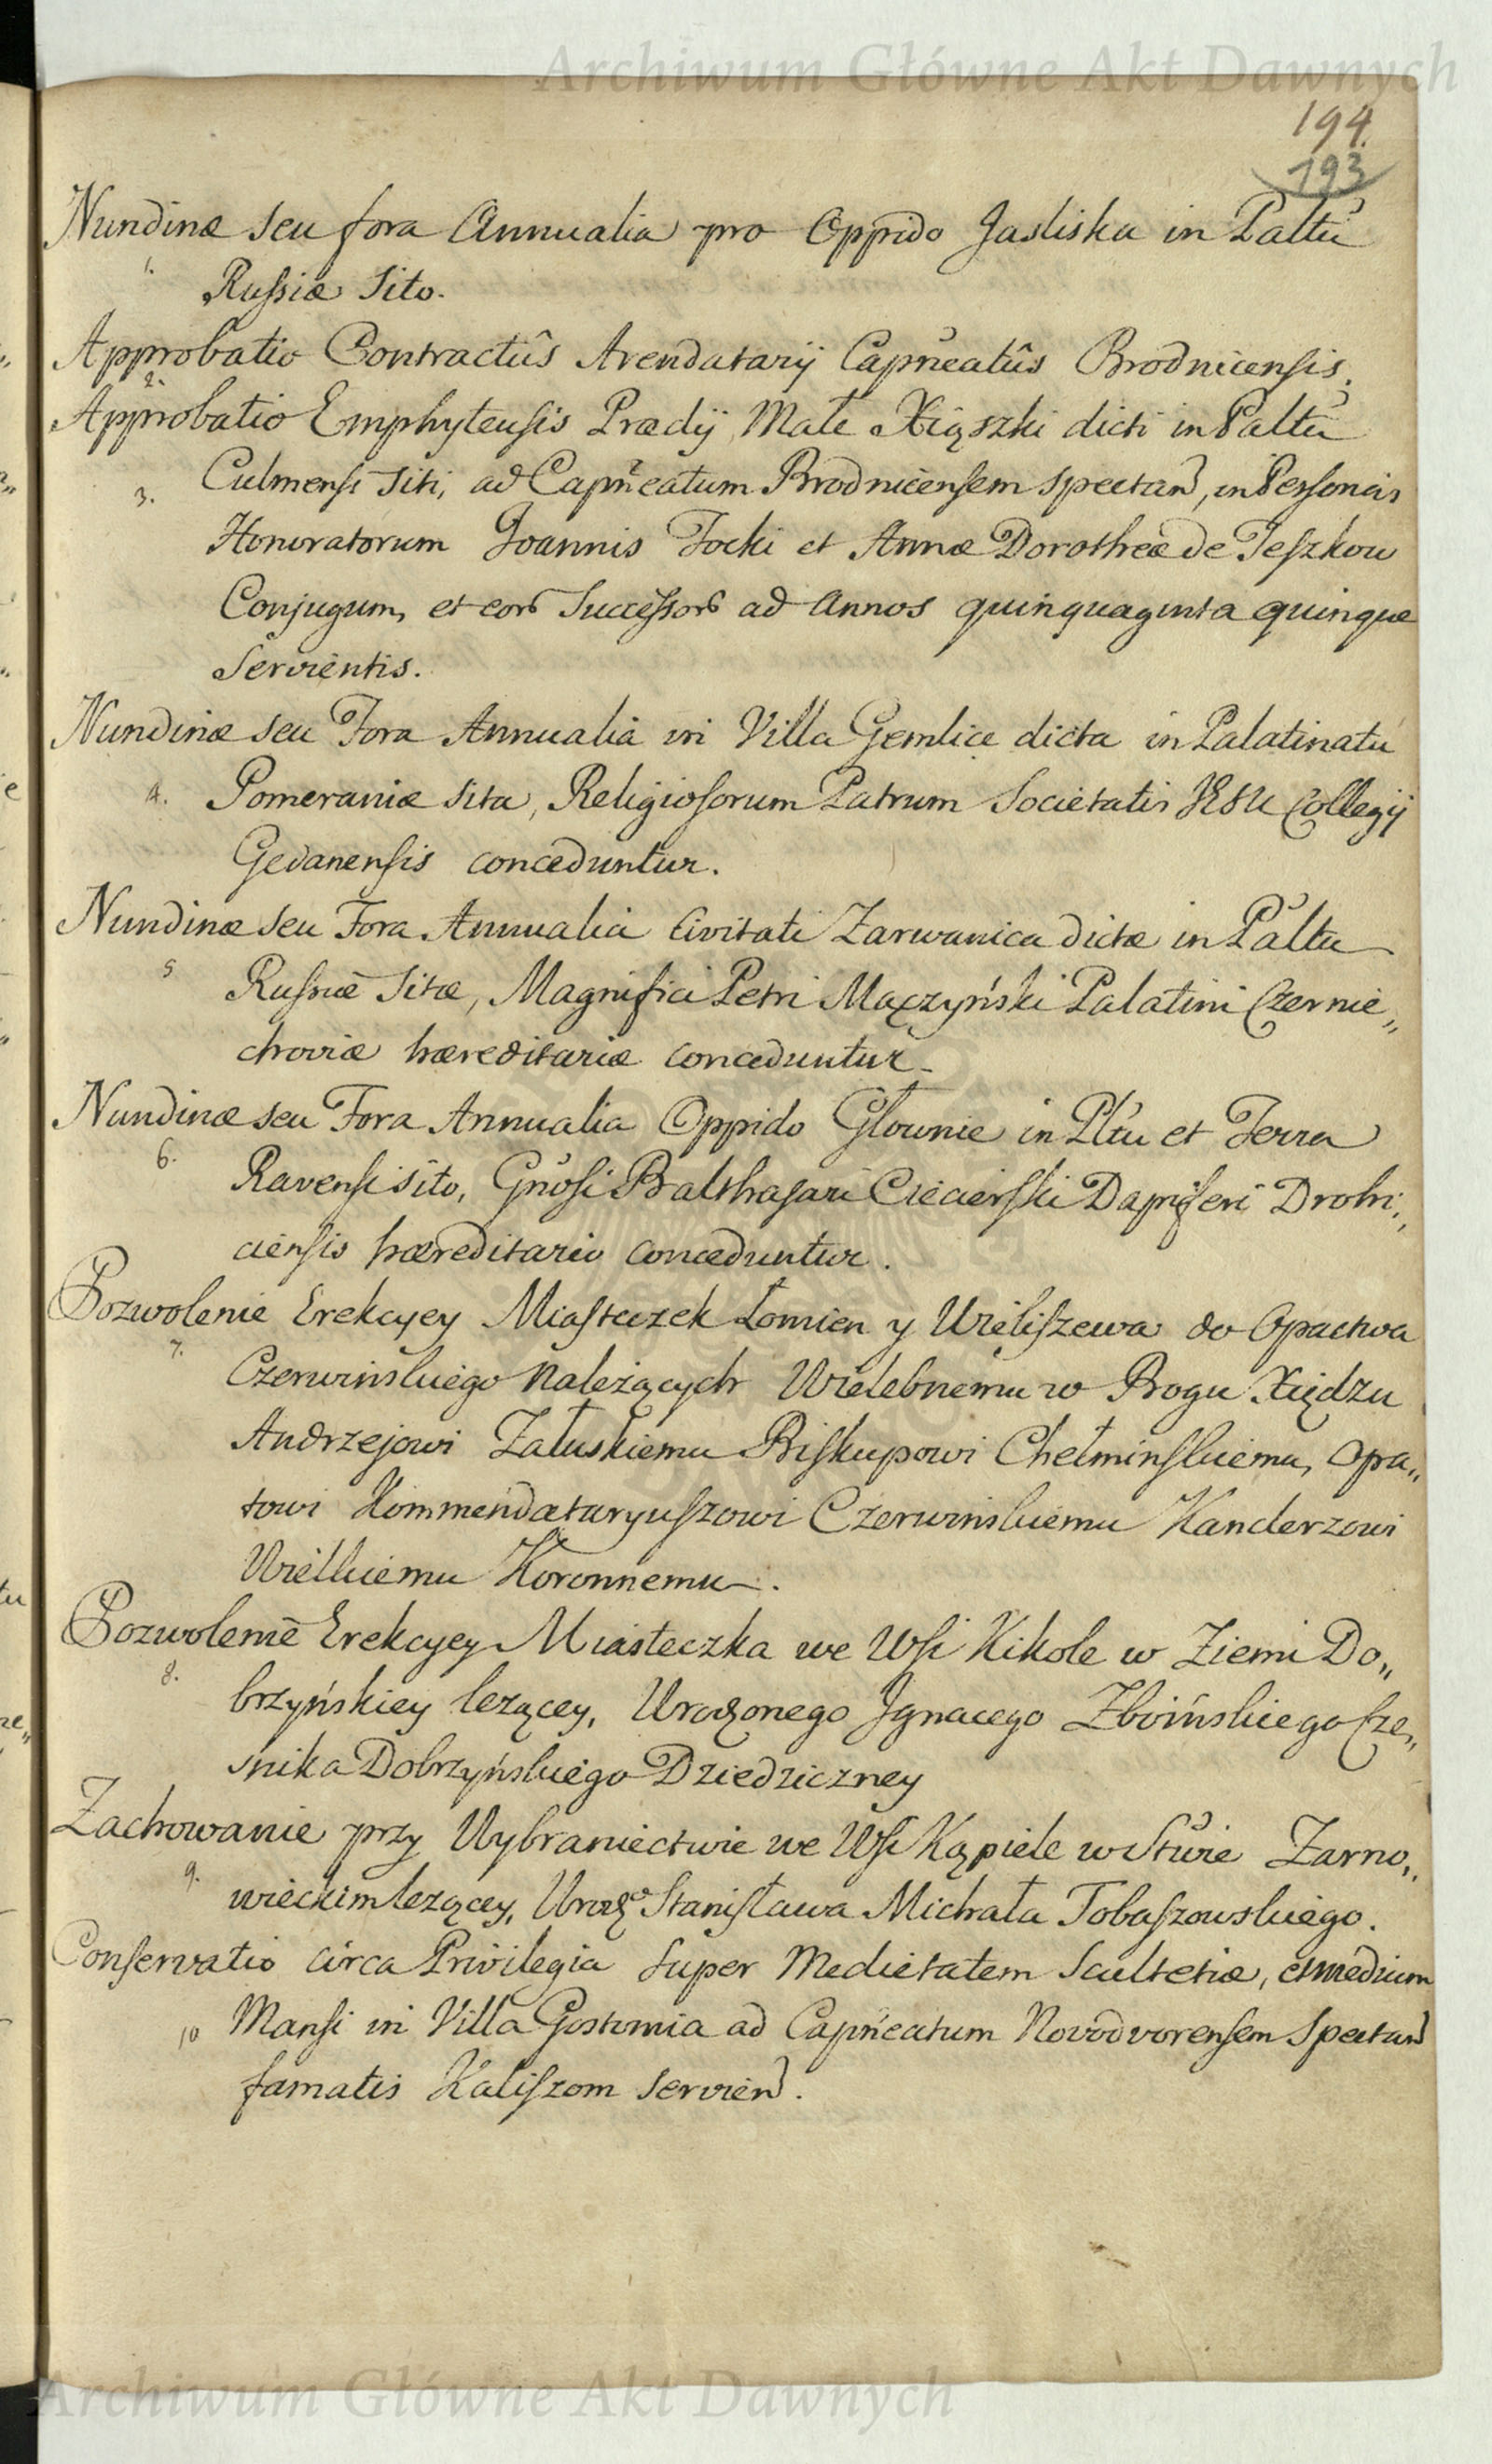 Archiwum Główne Akt Dawnych
194.
193
Nundinæ seu fora Annualia pro Oppido Jasliska in Paltu
1. Russiæ sito.
Approbatio Contractûs Arendatarij Capñeatûs Brodnicensis.
2.
Approbatio Emphyteusis Prædij Małe Xiąszki dicti in Paltu
3. Culmensi siti, ad Capñeatum Brodnicensem spectan, in Personas
Honoratorum Joannis Focki et Annæ Dorotheæ de Jeszkow
Conjugum, et eor Successor ad Annos quinquaginta quinque
Servientis.
Nundinæ seu Fora Annualia in Villa Gemlice dicta in Palatinatu
4. Pomeraniæ sita, Religiosorum Patrum Societatis JESU Collegij
Gedanensis conceduntur.
Nundinæ seu Fora Annualia Civitati Zarwanica dictæ in Paltu
5 Russiæ sitæ, Magnifici Petri Mączyński Palatini Czernie„
choviæ hæreditariæ conceduntur.
Nundinæ seu Fora Annualia Oppido Głownie in Pltu et Terra
6. Ravensi sito, Gnosi Balthasari Ciecierski Dapiferi Drohi„
ciensis hæreditario conceduntur.
Pozwolenie Erekcyey Miasteczek Łomien y Wieliszewa do Opactwa
7. Czerwinskiego Należących Wielebnemu w Bogu Xiędzu
Andrzejowi Załuskiemu Biskupowi Chełminskiemu, Opa„
towi Kommendataryuszowi Czerwinskiemu Kanclerzowi
Wielkiemu Koronnemu.
Pozwolenie Erekcyey Miasteczka we Wsi Kikole w Ziemi Do„
8. brzyńskiey lezącey, Urodzonego Jgnacego Zboińskiego Cze„
snika Dobrzyńskiego Dziedziczney
Zachowanie przy Wybraniectwie we Wsi Kąpiele w Stwie Zarno„
9. wieckim lezącey, Urodzo Stanisława Michała Tobaszowskiego.
Conservatio circa Privilegia super Medietatem Scultetiæ, et medium
10 Mansi in Villa Gostomia ad Capñeatum Novodvorensem Spectan
famatis Kaliszom servien.
Archiwum Główne Akt Dawnych